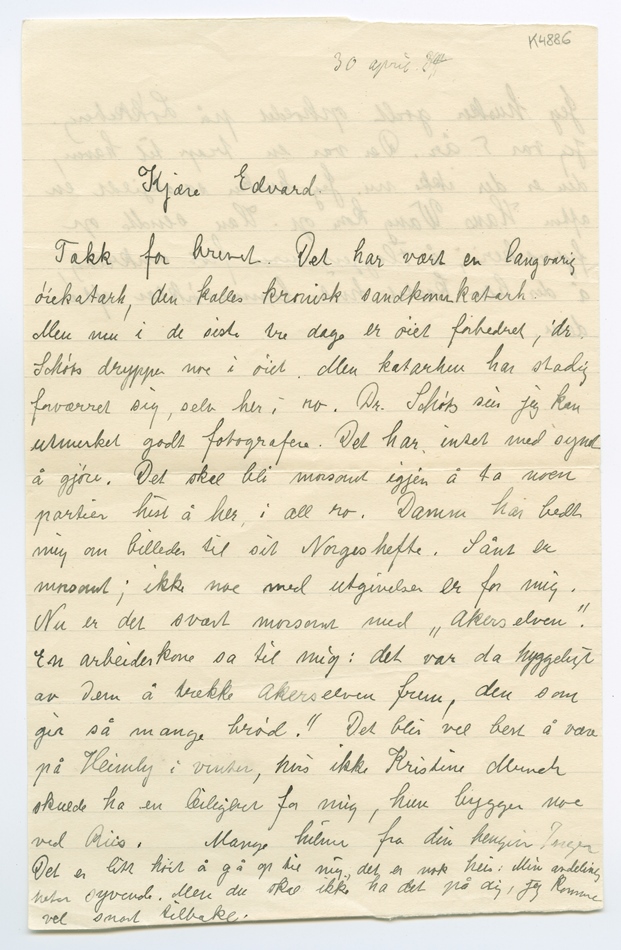 K4886
30 april.
Kjære Edvard
Takk for brevet. Det har vært en langvarig
øiekatarh, den kalles kronisk sandkornkatarh.
Men nu i de siste tre dage er øiet forbedret, dr.
Schiøts drypper noe i øiet. Men katarhen har stadig
forværret sig, selv her i ro. Dr. Schiøts sier jeg kan
utmerket godt fotografere. Det har intet med synet
å gjøre. Det skal bli morsomt igjen å ta noen
partier hist å her, i all ro. Damm har bedt
mig om billeder til sit Norgeshefte. Sånt er
morsomt; ikke noe med utgivelser er for mig.
Nu er det svært morsomt med „Akerselven".
En arbeiderkone sa til mig: det var da hyggeligt
av Dem å trekke Akerselven frem, den som
gir så mange brød!" Det blir vel best å være
på Heimly i vinter, hvis ikke Kristine Munch
skulde ha en leilighet for mig, hun bygger noe
ved Riis. Mange hilsner fra din hengivn Inger
Det er litt høit å gå op til mig, det er nok heis: Min
heter syvende. Men du skal ikke ha det på dig, jeg kommer
vel snart tilbake.